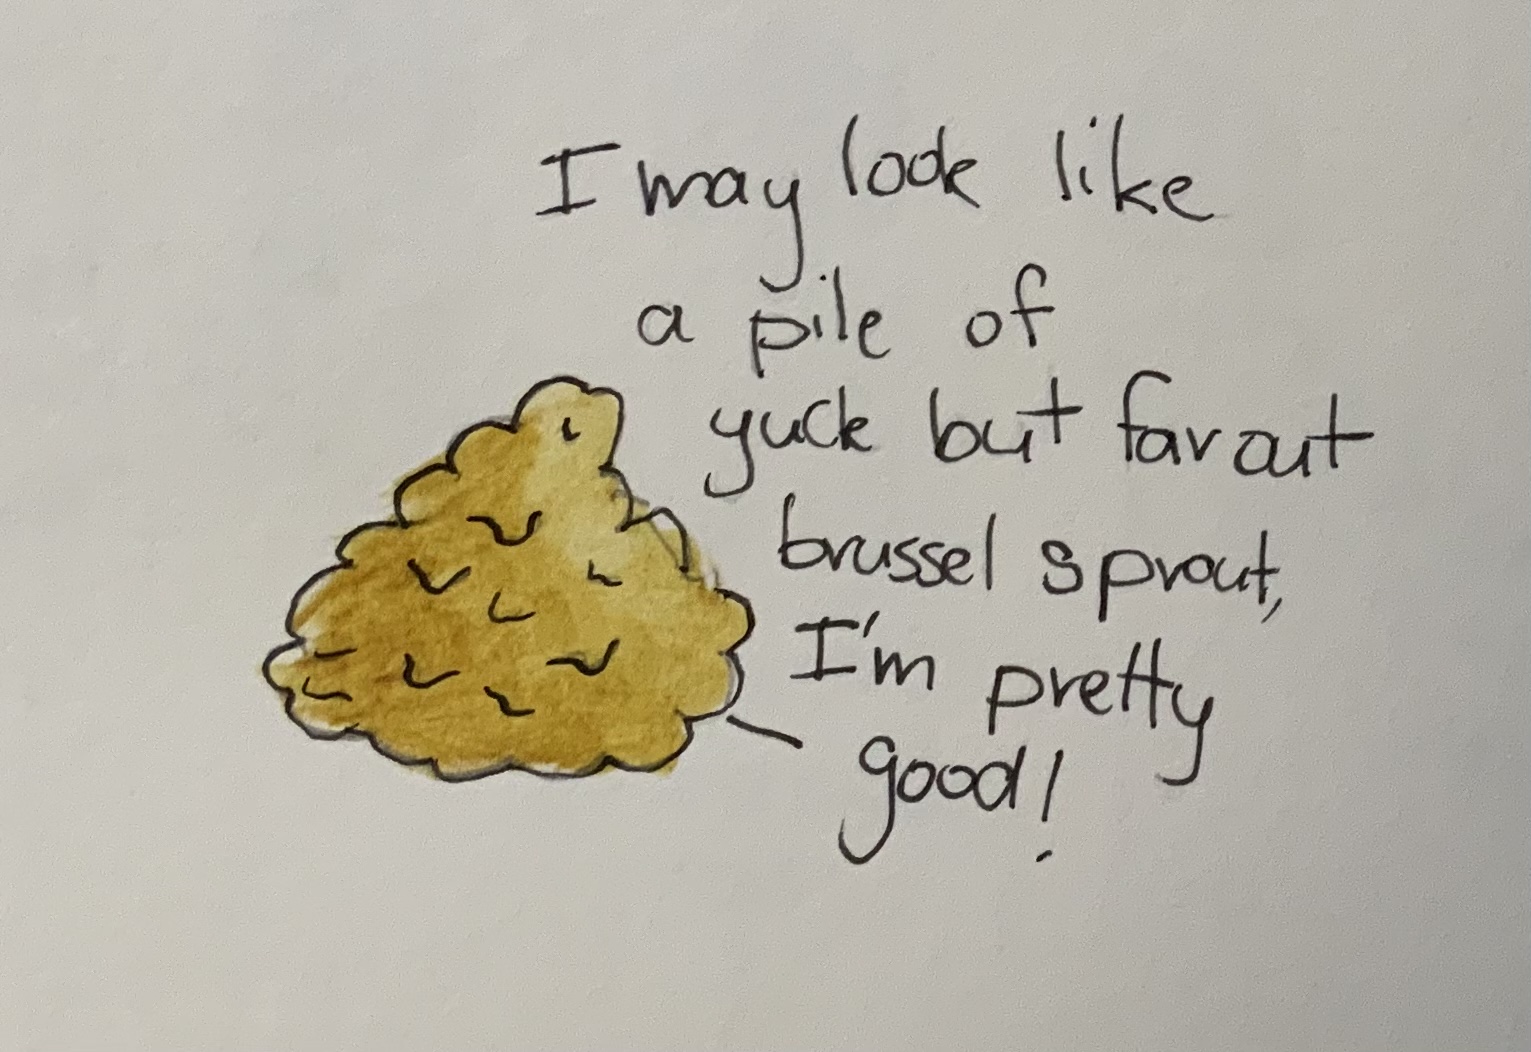 I may look like
a pile of
yuck but far out
brussel sprout,
I'm pretty
good!